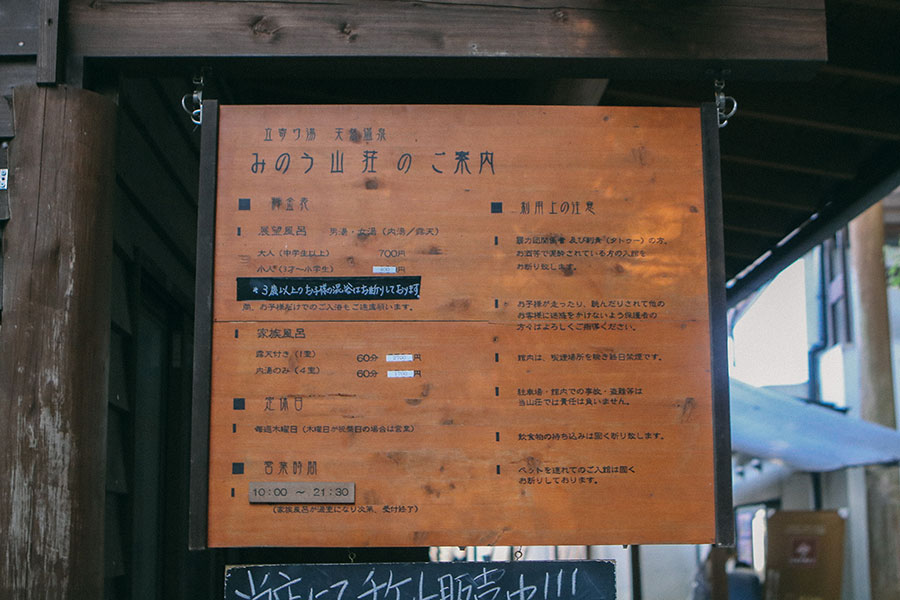 天然温泉
みのう山荘のご案内
■ 料金表
展望風呂 男湯・女湯(内湯/露天)
大人(中学生以上) 700円
小人(3才~小学生) 円
*3歳以上のお子様の混浴はお断りしております
尚、お子様だけでのご入浴もご遠慮願います。
家族風呂
露天付き(1室) 60分 円
内湯のみ(4室) 60分 円
■ 定休日
毎週木曜日(木曜日が祝祭日の場合は営業)
■ 営業時間
10:00 ~ 21:30
(家族風呂が満室になり次第、受付終了)
■ 利用上の注意
暴力団関係者 及び刺青(タトゥー)の方、
お酒等で泥酔されている方の入館も
お断り致します。
お子様が走ったり、騒いだりされて他の
お客様に迷惑をかけないよう保護者の
方々はよろしくご指導ください。
館内は、喫煙場所を除き終日禁煙です。
駐車場・館内での事故・盗難等は
当山荘では責任は負いません。
飲食物の持ち込みは固く断り致します。
ペットを連れてのご入館は固く
お断りしております。
当店にてチケット販売中!!!